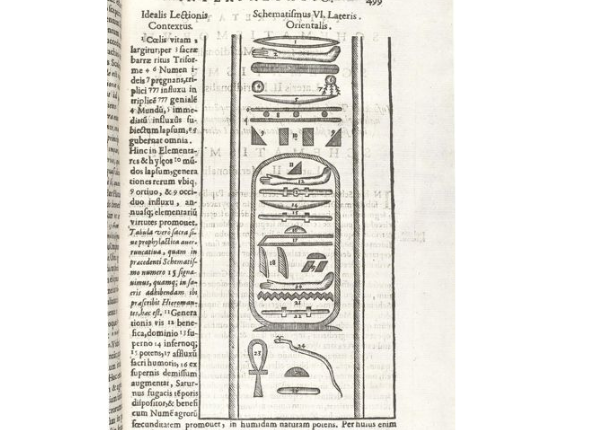 499
Idealis Lectionis
Contextus.
Schematismus VI. Lateris.
Orientalis.
Cœlis vitam
largitur; per sacræ
barræ ritus Trifor-
me Numen i-
deis prægnans, tri-
plici influxu in
triplicē geniale
Mundū, imme-
diatū influxūs su-
biectum lapsum, &
gubernat omnia.
Hinc in Elementa-
res & hylęos mū-
dos lapsum, genera
tiones rerum vbiq.
ortiuo, & occi-
duo influxu, an-
nuasq; elementariū
virtutes promouet.
Tabula verò sacra si-
ue prophylactica auer-
runcatiua, quam in
præcedenti Schematis-
mo numero 15 signa-
uimus, quamq; in sa-
cris adhibendam ibi
præscribit Hieroman-
tes, hæc est. Genera
tionis vis bene-
fica, dominio su-
perno infernoq;
potens, affluxū
sacri humoris, ex
supernis demissum
augmentat, Satur-
nus fugacis tēporis
dispositor, & benefi
cum Numē agrorū
fœcunditatem promouet, in humidam naturam potens. Per huius enim